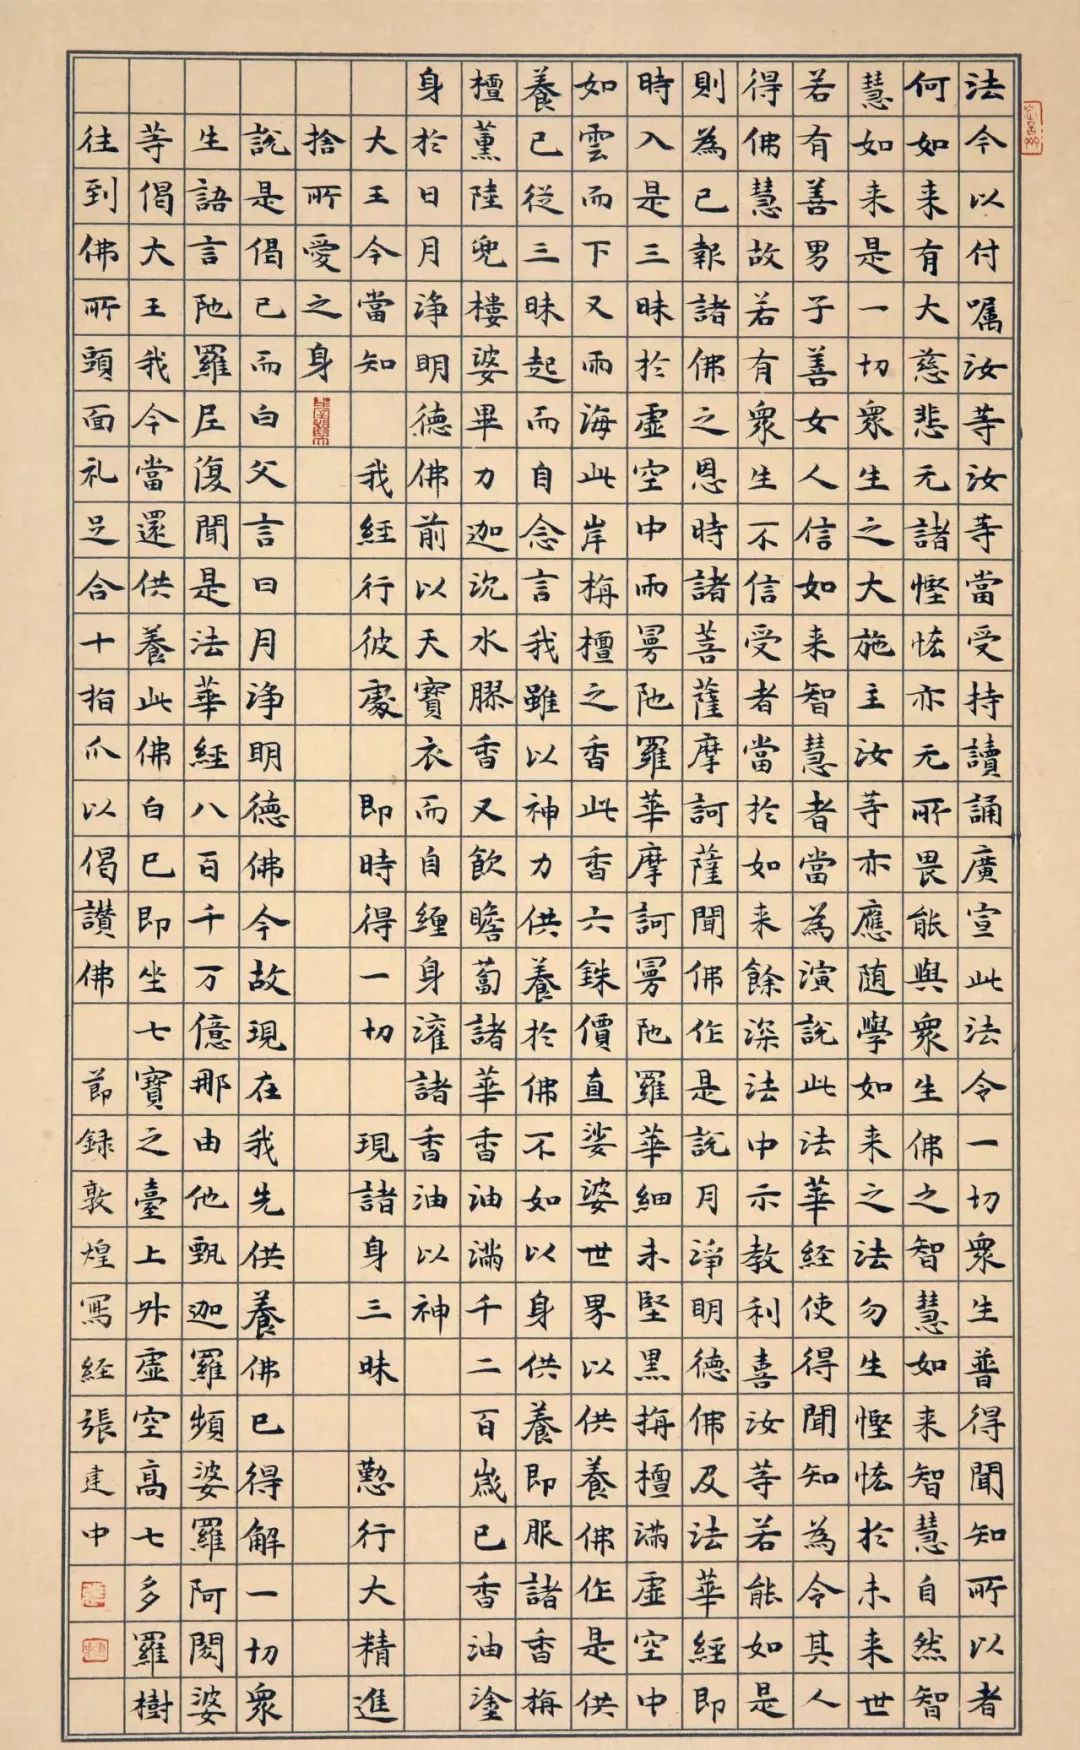 法今以付嘱汝等汝等當受持讀誦廣宣此法令一切衆生普得聞知所以者
何如来有大慈悲无諸慳恡亦无所畏能與衆生佛之智慧如来智慧自然智
慧如来是一切衆生之大施主汝等亦應随學如来之法勿生慳恡於未来世
若有善男子善女人信如来智慧者當為演說此法華経使得聞知為令其人
得佛慧故若有衆生不信受者當於如来餘深法中示教利喜汝等若能如是
則為已報諸佛之恩時諸菩薩摩訶薩聞佛作是說月淨明德佛及法華經即
時入是三昧於虛空中雨曼陁羅華摩訶曼陁羅華細末堅黒栴檀滿虛空中
如雲而下又雨海此岸栴檀之香此香六銖價直娑婆世界以供養佛作是供
養已從三昧起而自念言我雖以神力供養於佛不如以身供養即服諸香栴
檀薰陸兜樓婆畢力迦沉水膠香又飲瞻蔔諸華香油滿千二百歲已香油塗
身於日月淨明德佛前以天寶衣而自纏身灌諸香油以神
大王今當知 我経行彼處 即時得一切 現諸身三昧 懃行大精進
捨所愛之身
說是偈已而白父言日月淨明德佛今故現在我先供養佛已得解一切衆
生語言陁羅尼復聞是法華經八百千万億那由他甄迦羅頻婆羅阿閦婆
等偈大王我今當還供養此佛白已即坐七寶之臺上升虛空高七多羅樹
往到佛所頭面礼足合十指爪以偈讃佛 節録敦煌寫経張建中